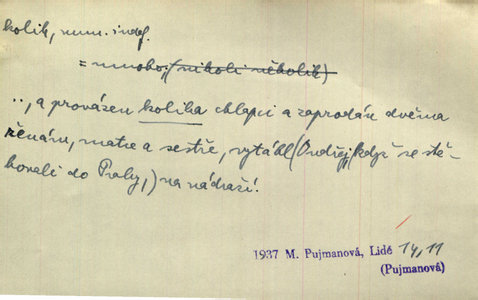 kolik, num. indef.
= mnoho, (nikoli několik)
.., a provázen kolika chlapci a zaprodán dvěma
ženám, matce a sestře, vytáhl (Ondřej, když se stě-
hovali do Prahy,) na nádraží!
1937 M. Pujmanová, Lidé 14, 11
(Pujmanová)